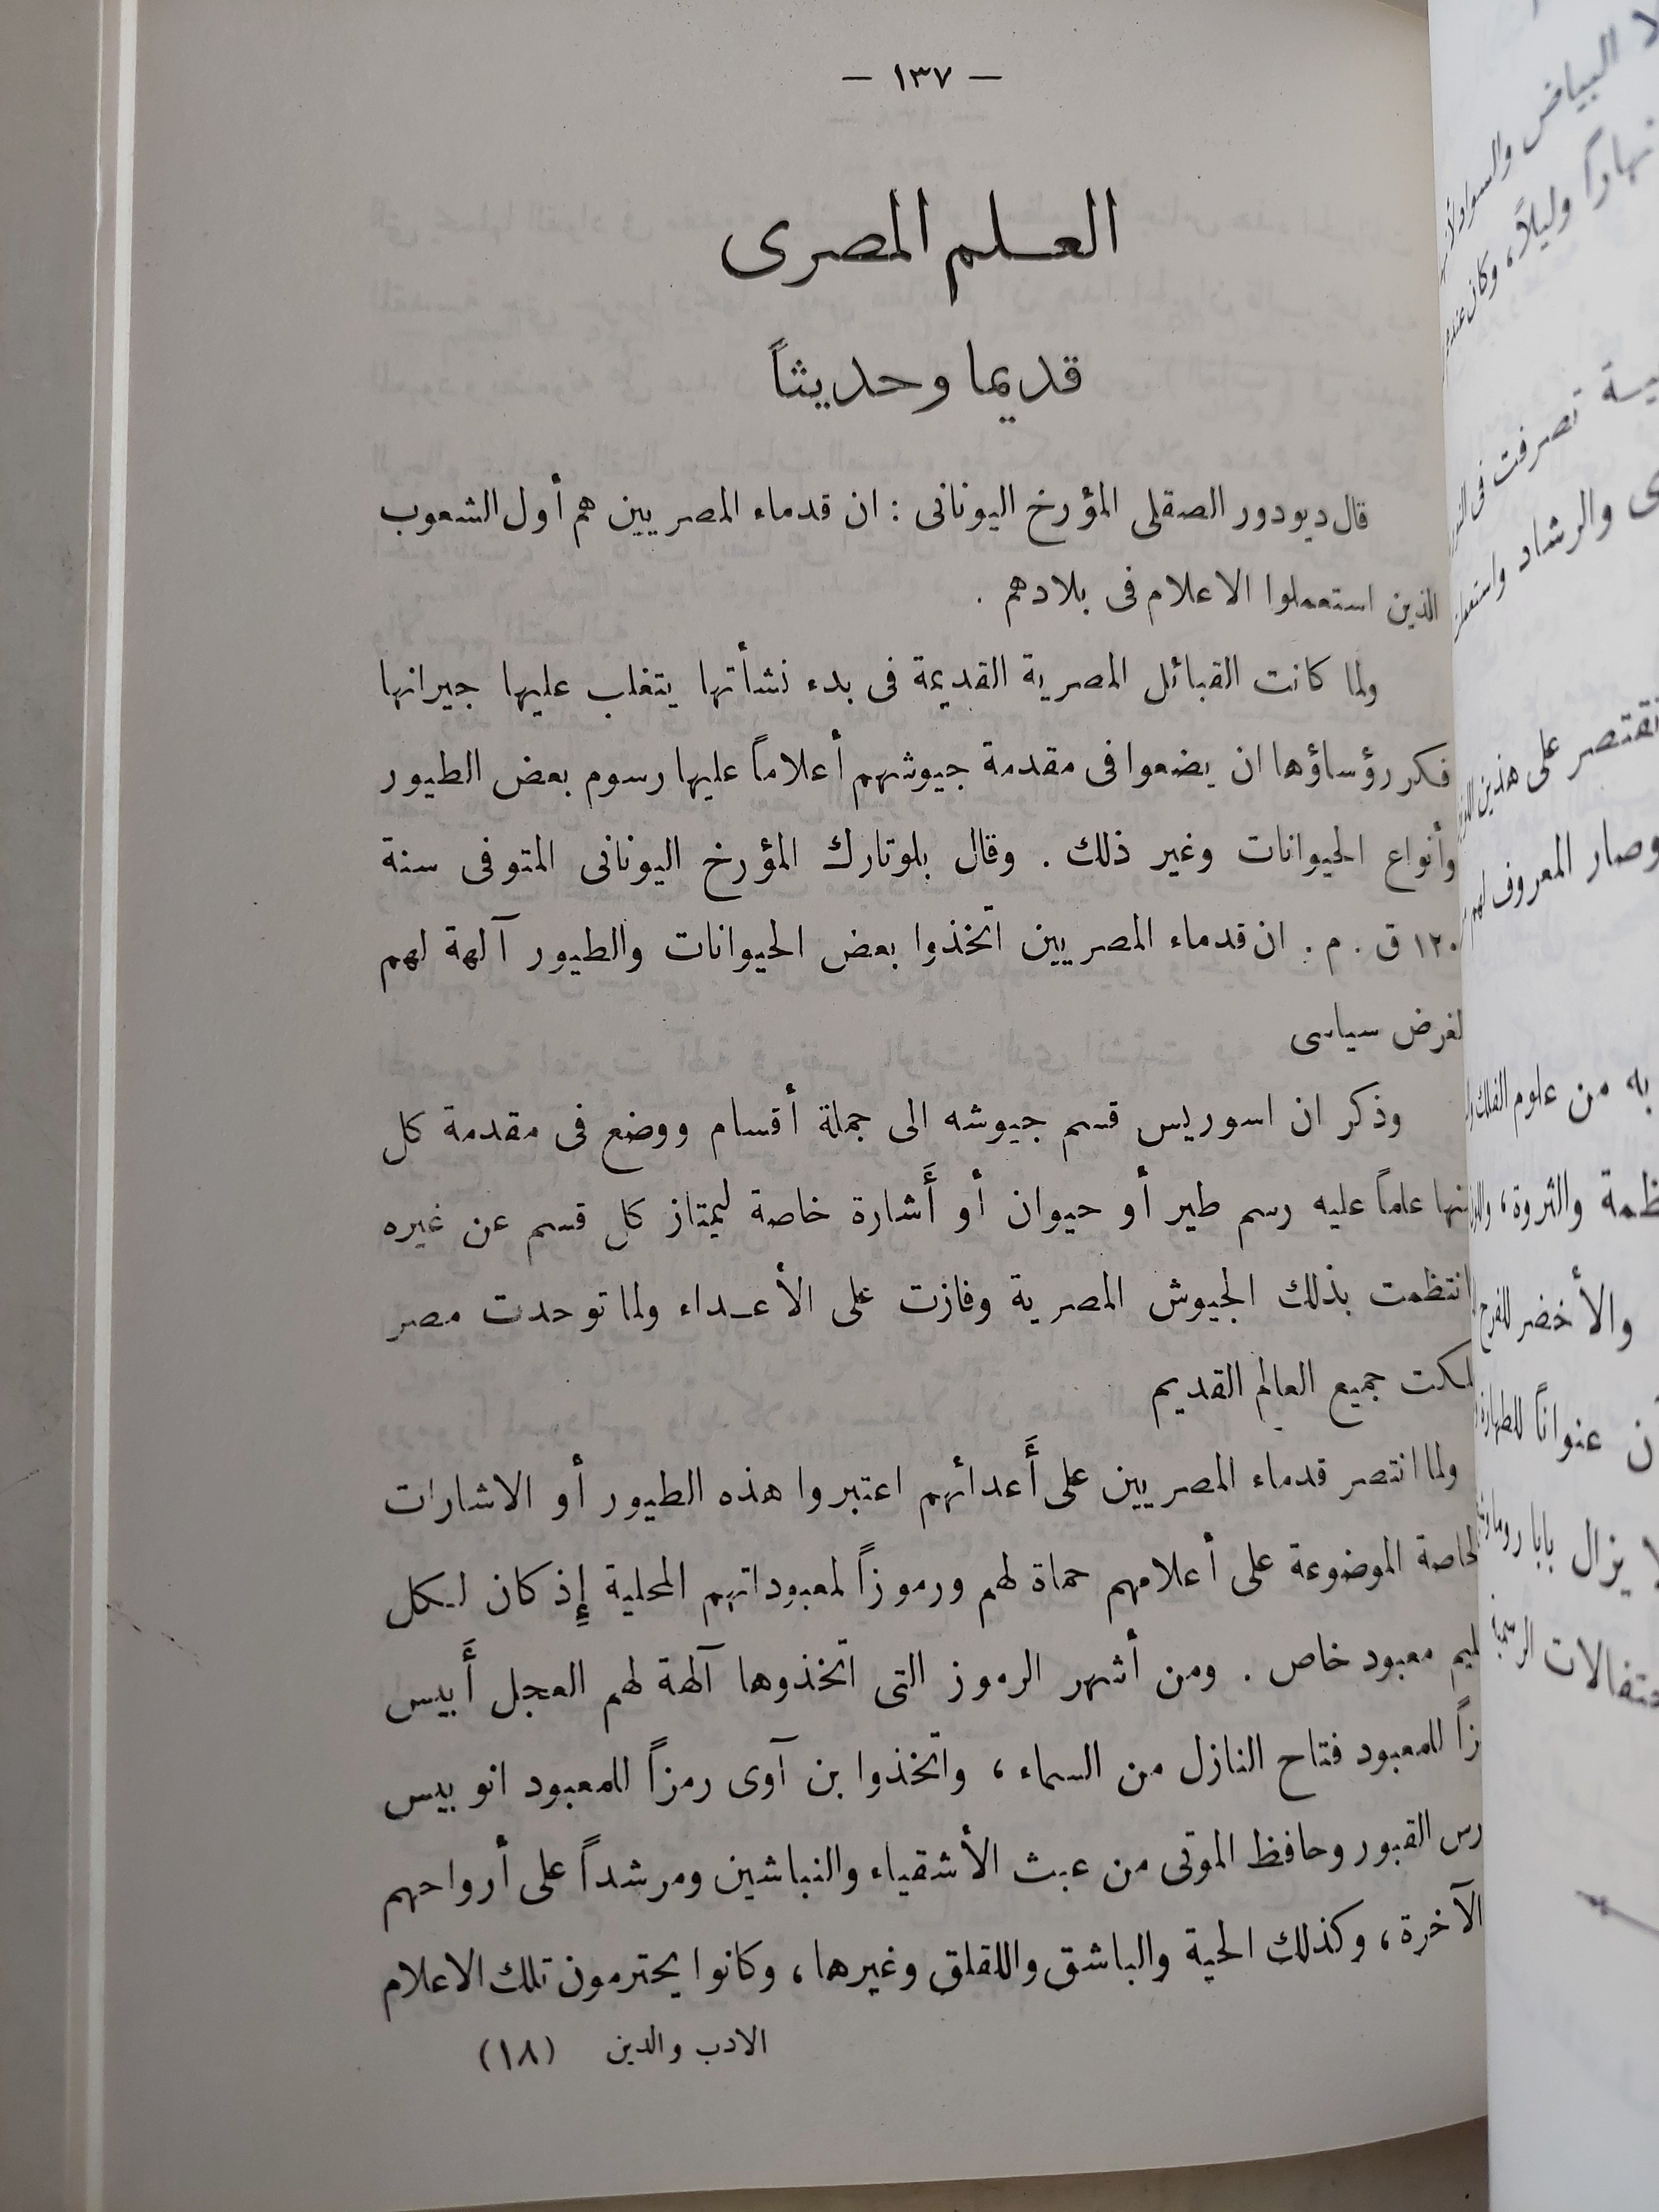 — ١٣٧ —
العلم المصرى
قديما وحديثاً
قال ديودور الصقلى المؤرخ اليونانى : ان قدماء المصريين هم أول الشعوب
الذين استعملوا الاعلام فى بلادهم .
ولما كانت القبائل المصرية القديمة فى بدء نشأتها يتغلب عليها جيرانها
فكر رؤساؤها ان يضعوا فى مقدمة جيوشهم أعلاماً عليها رسوم بعض الطيور
وأنواع الحيوانات وغير ذلك . وقال بلوتارك المؤرخ اليونانى المتوفى سنة
١٢٠ ق . م . ان قدماء المصريين اتخذوا بعض الحيوانات والطيور آلهة لهم
لغرض سياسى
وذكر ان اسوريس قسم جيوشه الى جملة أقسام ووضع فى مقدمة كل
منها علماً عليه رسم طير أو حيوان أو أَشارة خاصة ليمتاز كل قسم عن غيره
انتظمت بذلك الجيوش المصرية وفازت على الأعداء ولما توحدت مصر
ملكت جميع العالم القديم
ولما انتصر قدماء المصريين على أَعدائهم اعتبروا هذه الطيور أو الاشارات
لخاصة الموضوعة على أعلامهم حماة لهم ورموزاً لمعبوداتهم المحلية إِذ كان لكل
ليم معبود خاص . ومن أشهر الرموز التى اتخذوها آلهة لهم العجل أَبيس
زاً للمعبود فتاح النازل من السماء ، واتخذوا بن آوى رمزاً للمعبود انوبيس
رس القبور وحافظ الموتى من عبث الأشقياء والنباشين ومرشداً على أرواحهم
الآخرة ، وكذلك الحية والباشق واللقلق وغيرها ، وكانوا يحترمون تلك الاعلام
الادب والدين (١٨)
البياض والسواد
نهاراً وليلاً ، وكان
تصرفت فى
والرشاد
تقتصر على هذين
وصار المعروف لهم
به من علوم الفلك
والثروة ،
والأخضر للفرح
عنواناً للطهارة
يزال بابا روما
الرسمية